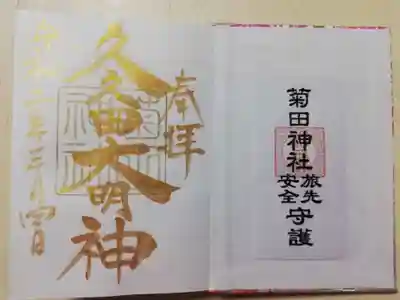 菊田神社
旅先
安全
守護
奉拝
久々田大明神
令和二年三月四日